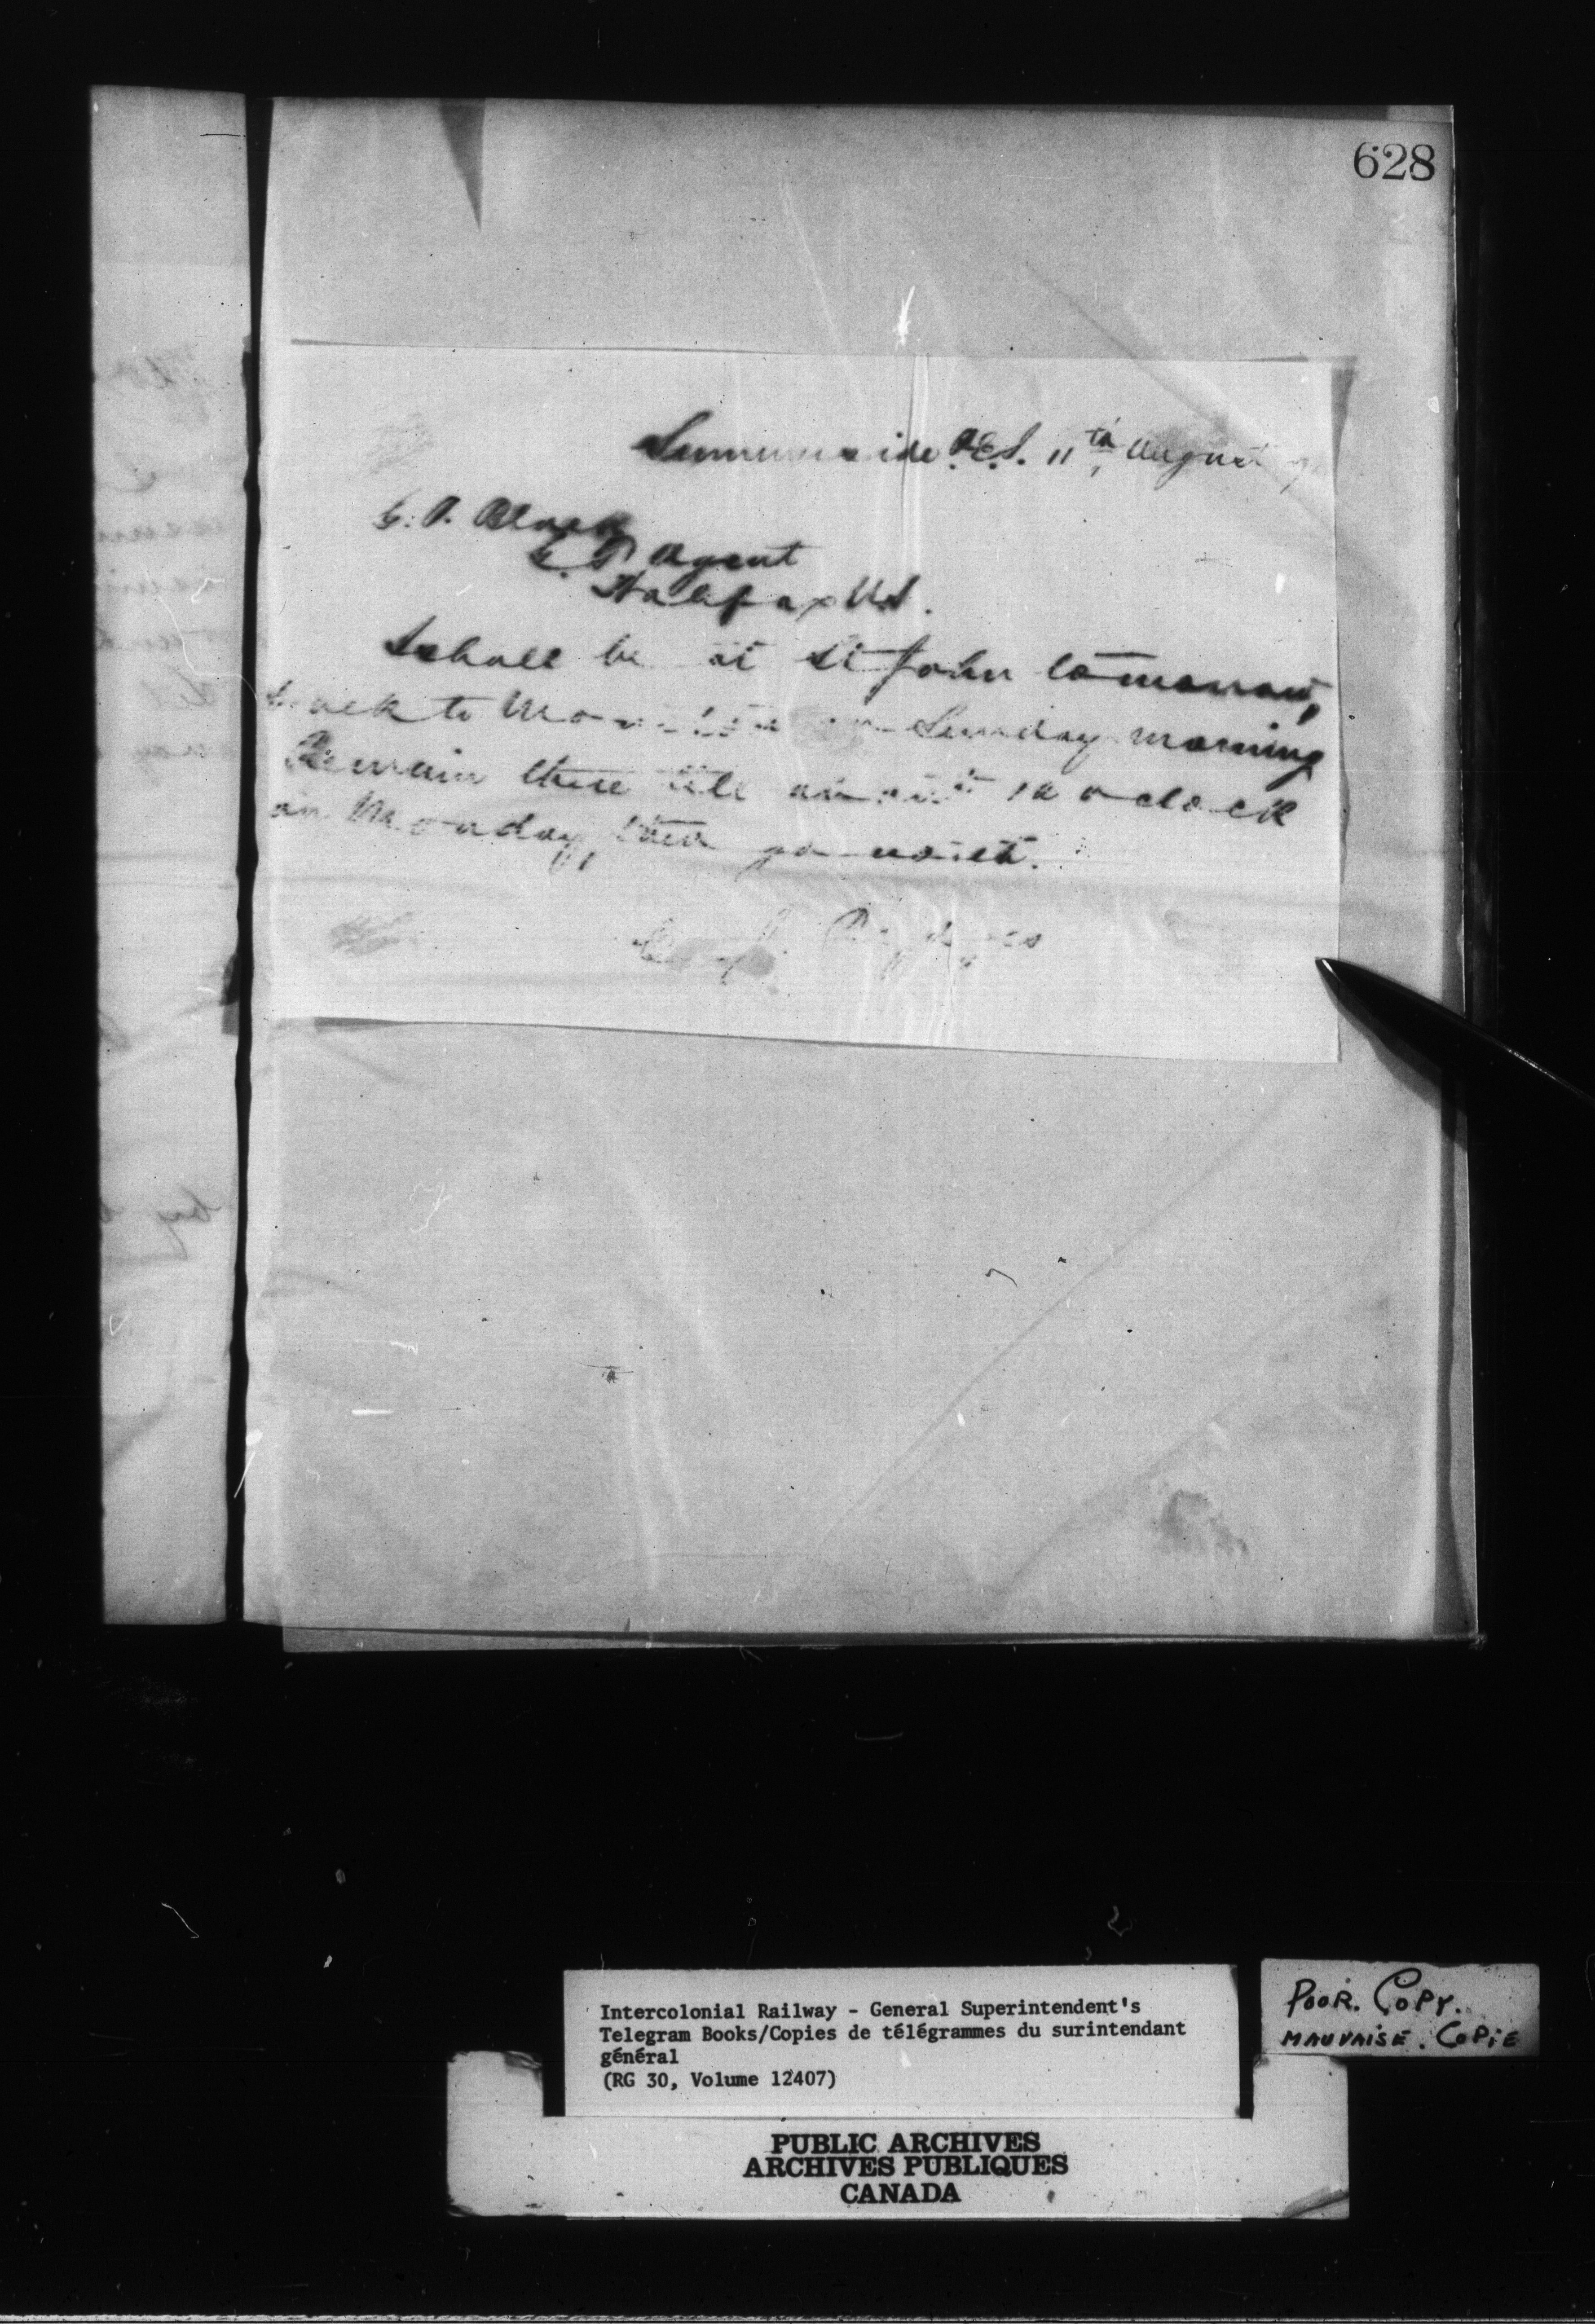 628
Summerside P.E.I. 11th August
G. P. Black
G. P. Agent
Halifax N.S.
I shall be at St John tomorrow,
back to Moncton on Sunday morning
Remain there till about 10 o clock
on Monday, then go north.
C. J. Brydges
Intercolonial Railway - General Superintendent's
Telegram Books/Copies de télégrammes du surintendant
général
(RG 30, Volume 12407)
POOR. COPY.
MAUVAISE. COPIE
PUBLIC ARCHIVES
ARCHIVES PUBLIQUES
CANADA